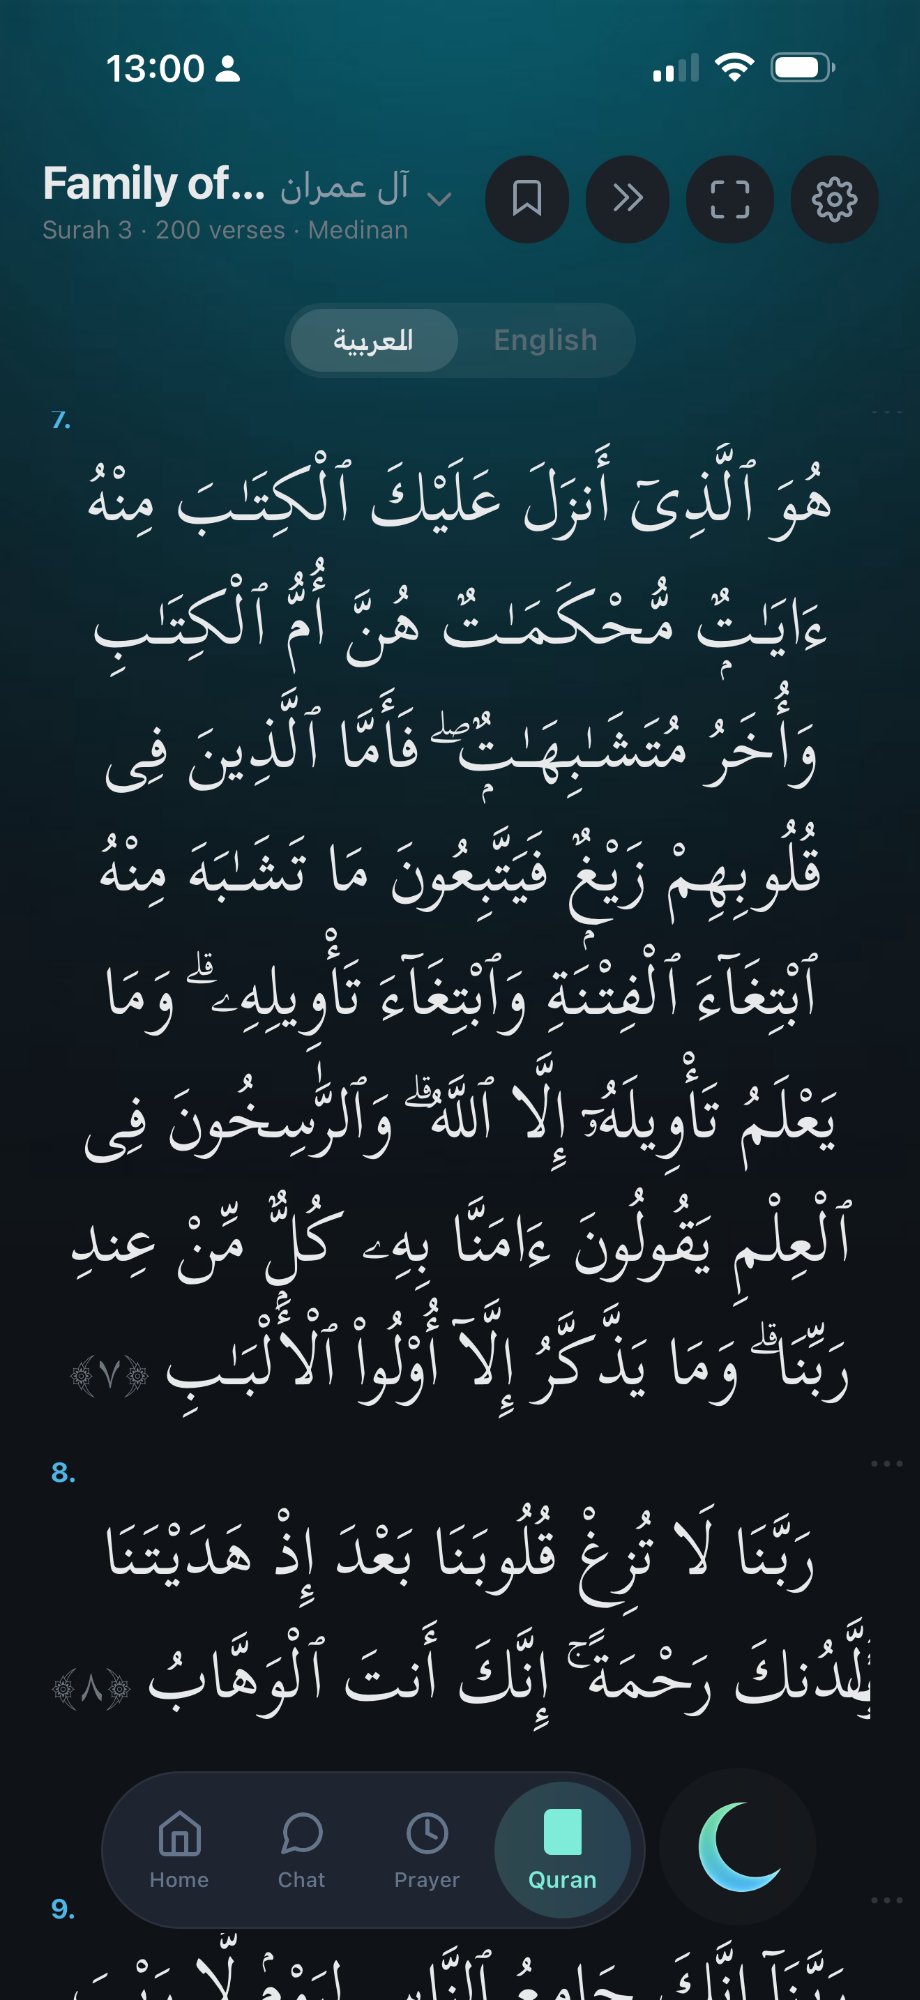 13:00
Family of... آل عمران
Surah 3 · 200 verses · Medinan
العربية English
7.
هُوَ ٱلَّذِىٓ أَنزَلَ عَلَيْكَ ٱلْكِتَـٰبَ مِنْهُ
ءَايَـٰتٌۭ مُّحْكَمَـٰتٌ هُنَّ أُمُّ ٱلْكِتَـٰبِ
وَأُخَرُ مُتَشَـٰبِهَـٰتٌۭ ۖ فَأَمَّا ٱلَّذِينَ فِى
قُلُوبِهِمْ زَيْغٌۭ فَيَتَّبِعُونَ مَا تَشَـٰبَهَ مِنْهُ
ٱبْتِغَآءَ ٱلْفِتْنَةِ وَٱبْتِغَآءَ تَأْوِيلِهِۦ ۗ وَمَا
يَعْلَمُ تَأْوِيلَهُۥٓ إِلَّا ٱللَّهُ ۗ وَٱلرَّٰسِخُونَ فِى
ٱلْعِلْمِ يَقُولُونَ ءَامَنَّا بِهِۦ كُلٌّۭ مِّنْ عِندِ
رَبِّنَا ۗ وَمَا يَذَّكَّرُ إِلَّآ أُو۟لُوا۟ ٱلْأَلْبَـٰبِ ﴿٧﴾
8.
رَبَّنَا لَا تُزِغْ قُلُوبَنَا بَعْدَ إِذْ هَدَيْتَنَا
لَّدُنكَ رَحْمَةً ۚ إِنَّكَ أَنتَ ٱلْوَهَّابُ ﴿٨﴾
Home Chat Prayer Quran
9.
رَبَّنَآ إِنَّكَ جَامِعُ ٱلنَّاسِ لِيَوْمٍۢ لَّا رَيْبَ